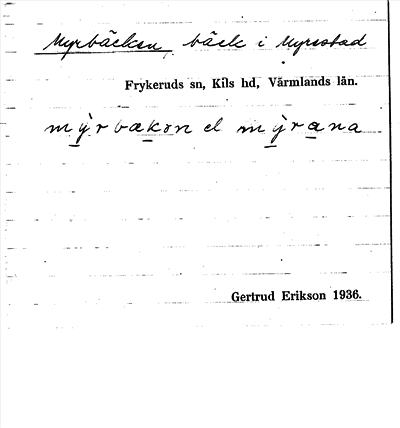 Myrbäcken, bäck i Myrestad
Frykeruds sn, Kils hd, Värmlands län.
mỳrbækən el mỳrana
Gertrud Erikson 1936.